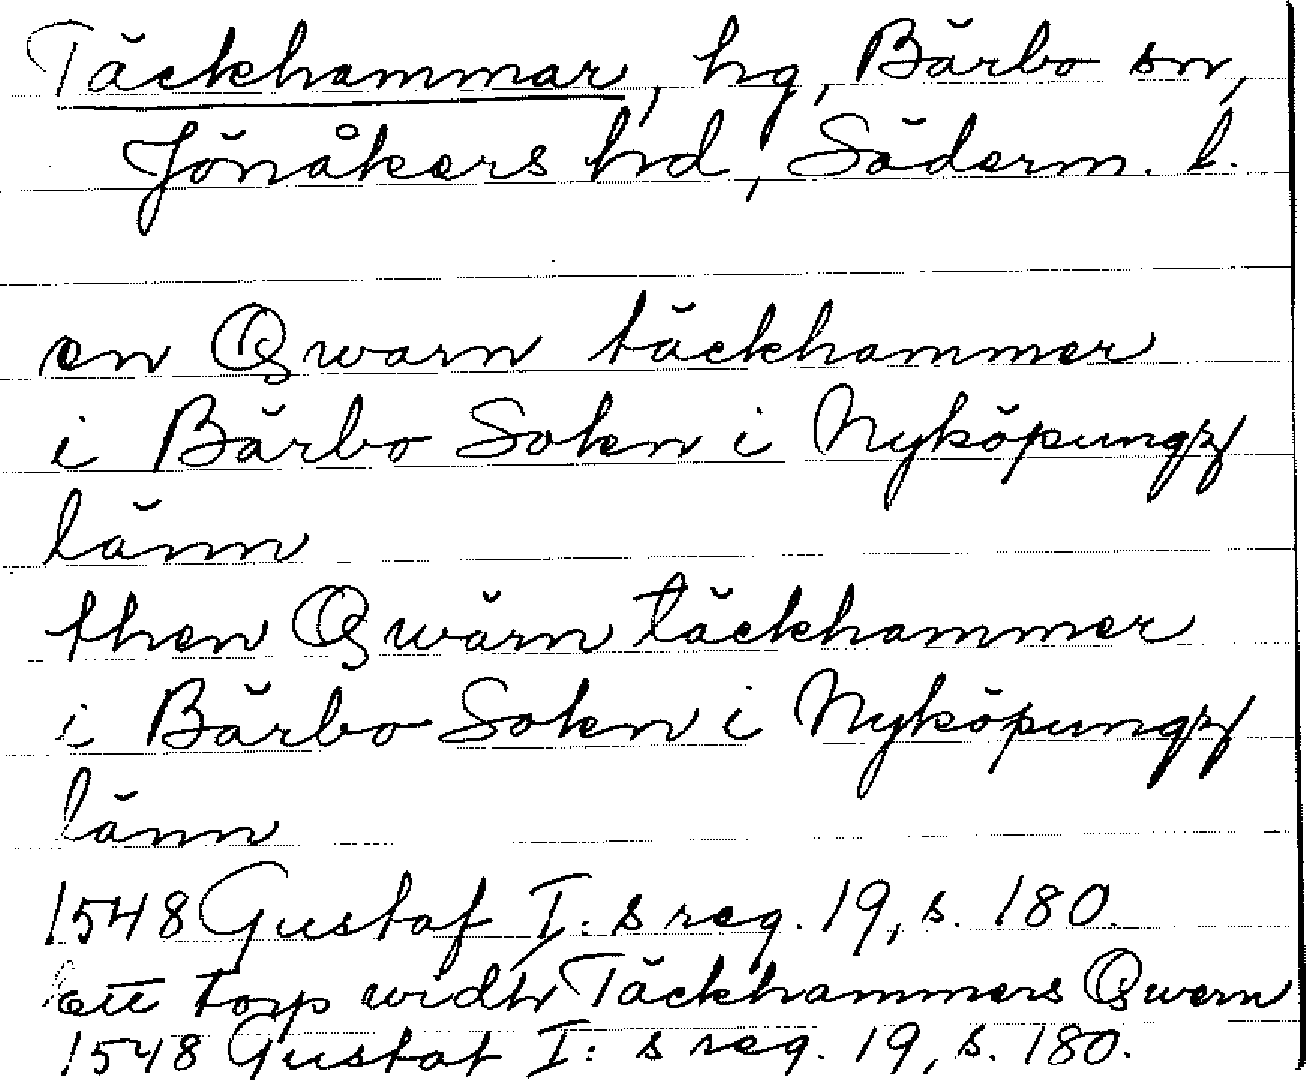 Täckhammar, hg, Bärbo sn,
Jönåkers hd, Söderm. l.
en Qwarn täckhammer
i Bärbo Sokn i Nyköpungz
länn
then Qwärn täckhammer
i Bärbo Sokn i Nyköpungz
länn
1548 Gustaf I:s reg. 19, s. 180.
ett torp widh Täckhammers Qwern
1548 Gustaf I:s reg. 19, s. 180.